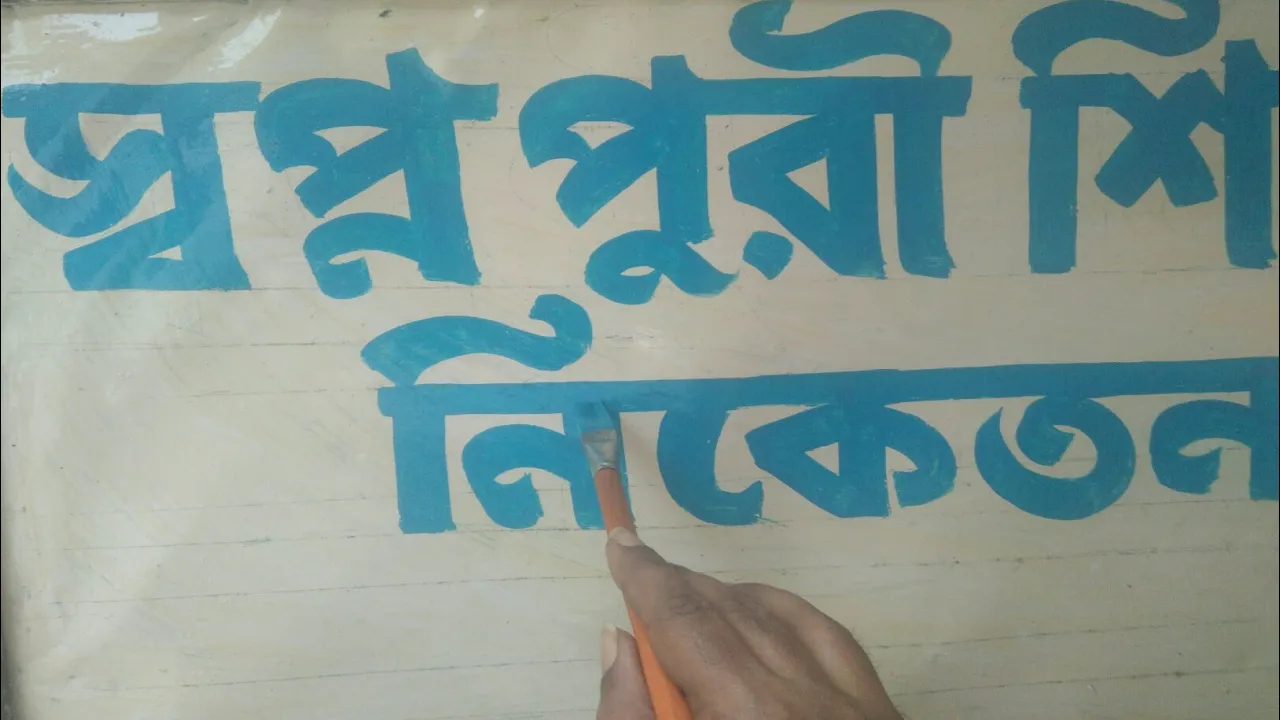 স্বপ্ন পুরী শি
নিকেতন